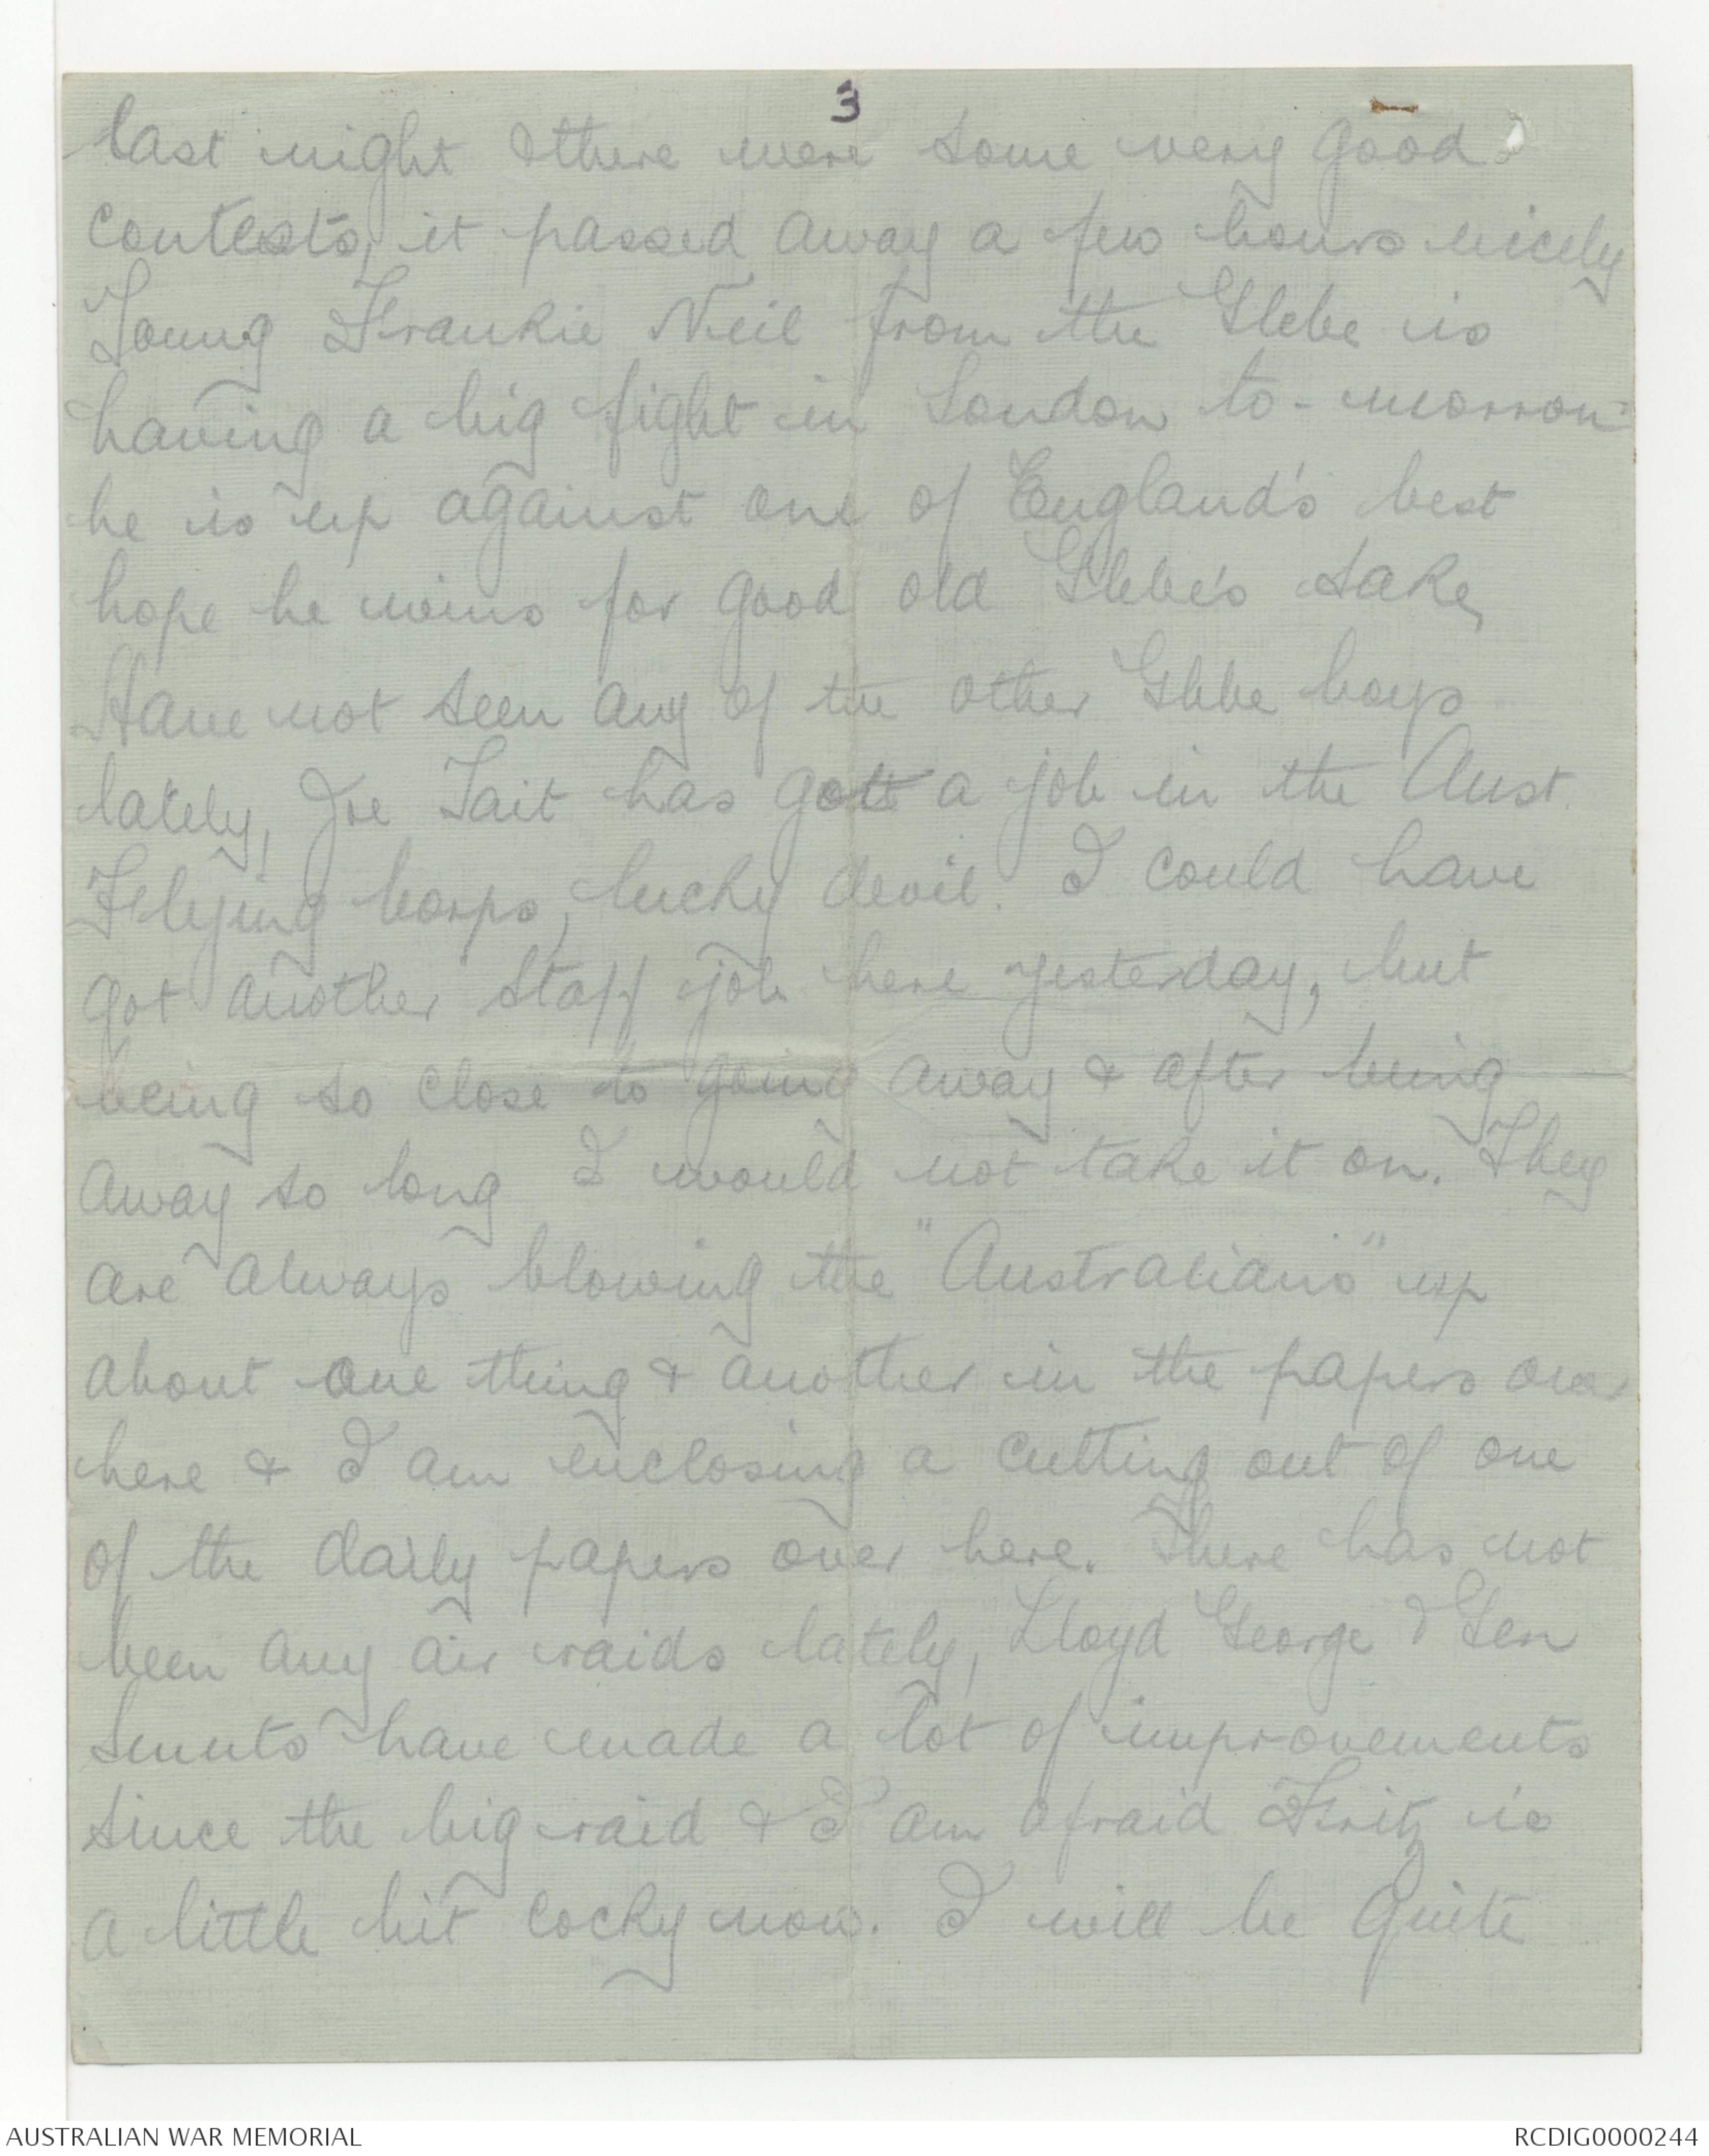 3
last night & there were some very good
contests, it passed away a few hours nicely
Young Frankie Neil from the Glebe is
having a big fight in London to-morrow
he is up against one of England's best
hope he wins for good old Glebe's sake,
Have not seen any of the other Glebe boys
lately, Joe Tait has gott a job in the Aust.
Flying Corps, lucky devil. I could have
got another staff job here yesterday, but
being so close to going away & after being
away so long I would not take it on. They
are always blowing the "Australians" up
about one thing & another in the papers over
here & I am enclosing a cutting out of one
of the daily papers over here. There has not
been any air raids lately, Lloyd George & Gen
Smuts have made a lot of improvements
since the big raid & I am afraid Fritz is
a little bit cocky now. I will be quite
AUSTRALIAN WAR MEMORIAL
RCDIG0000244